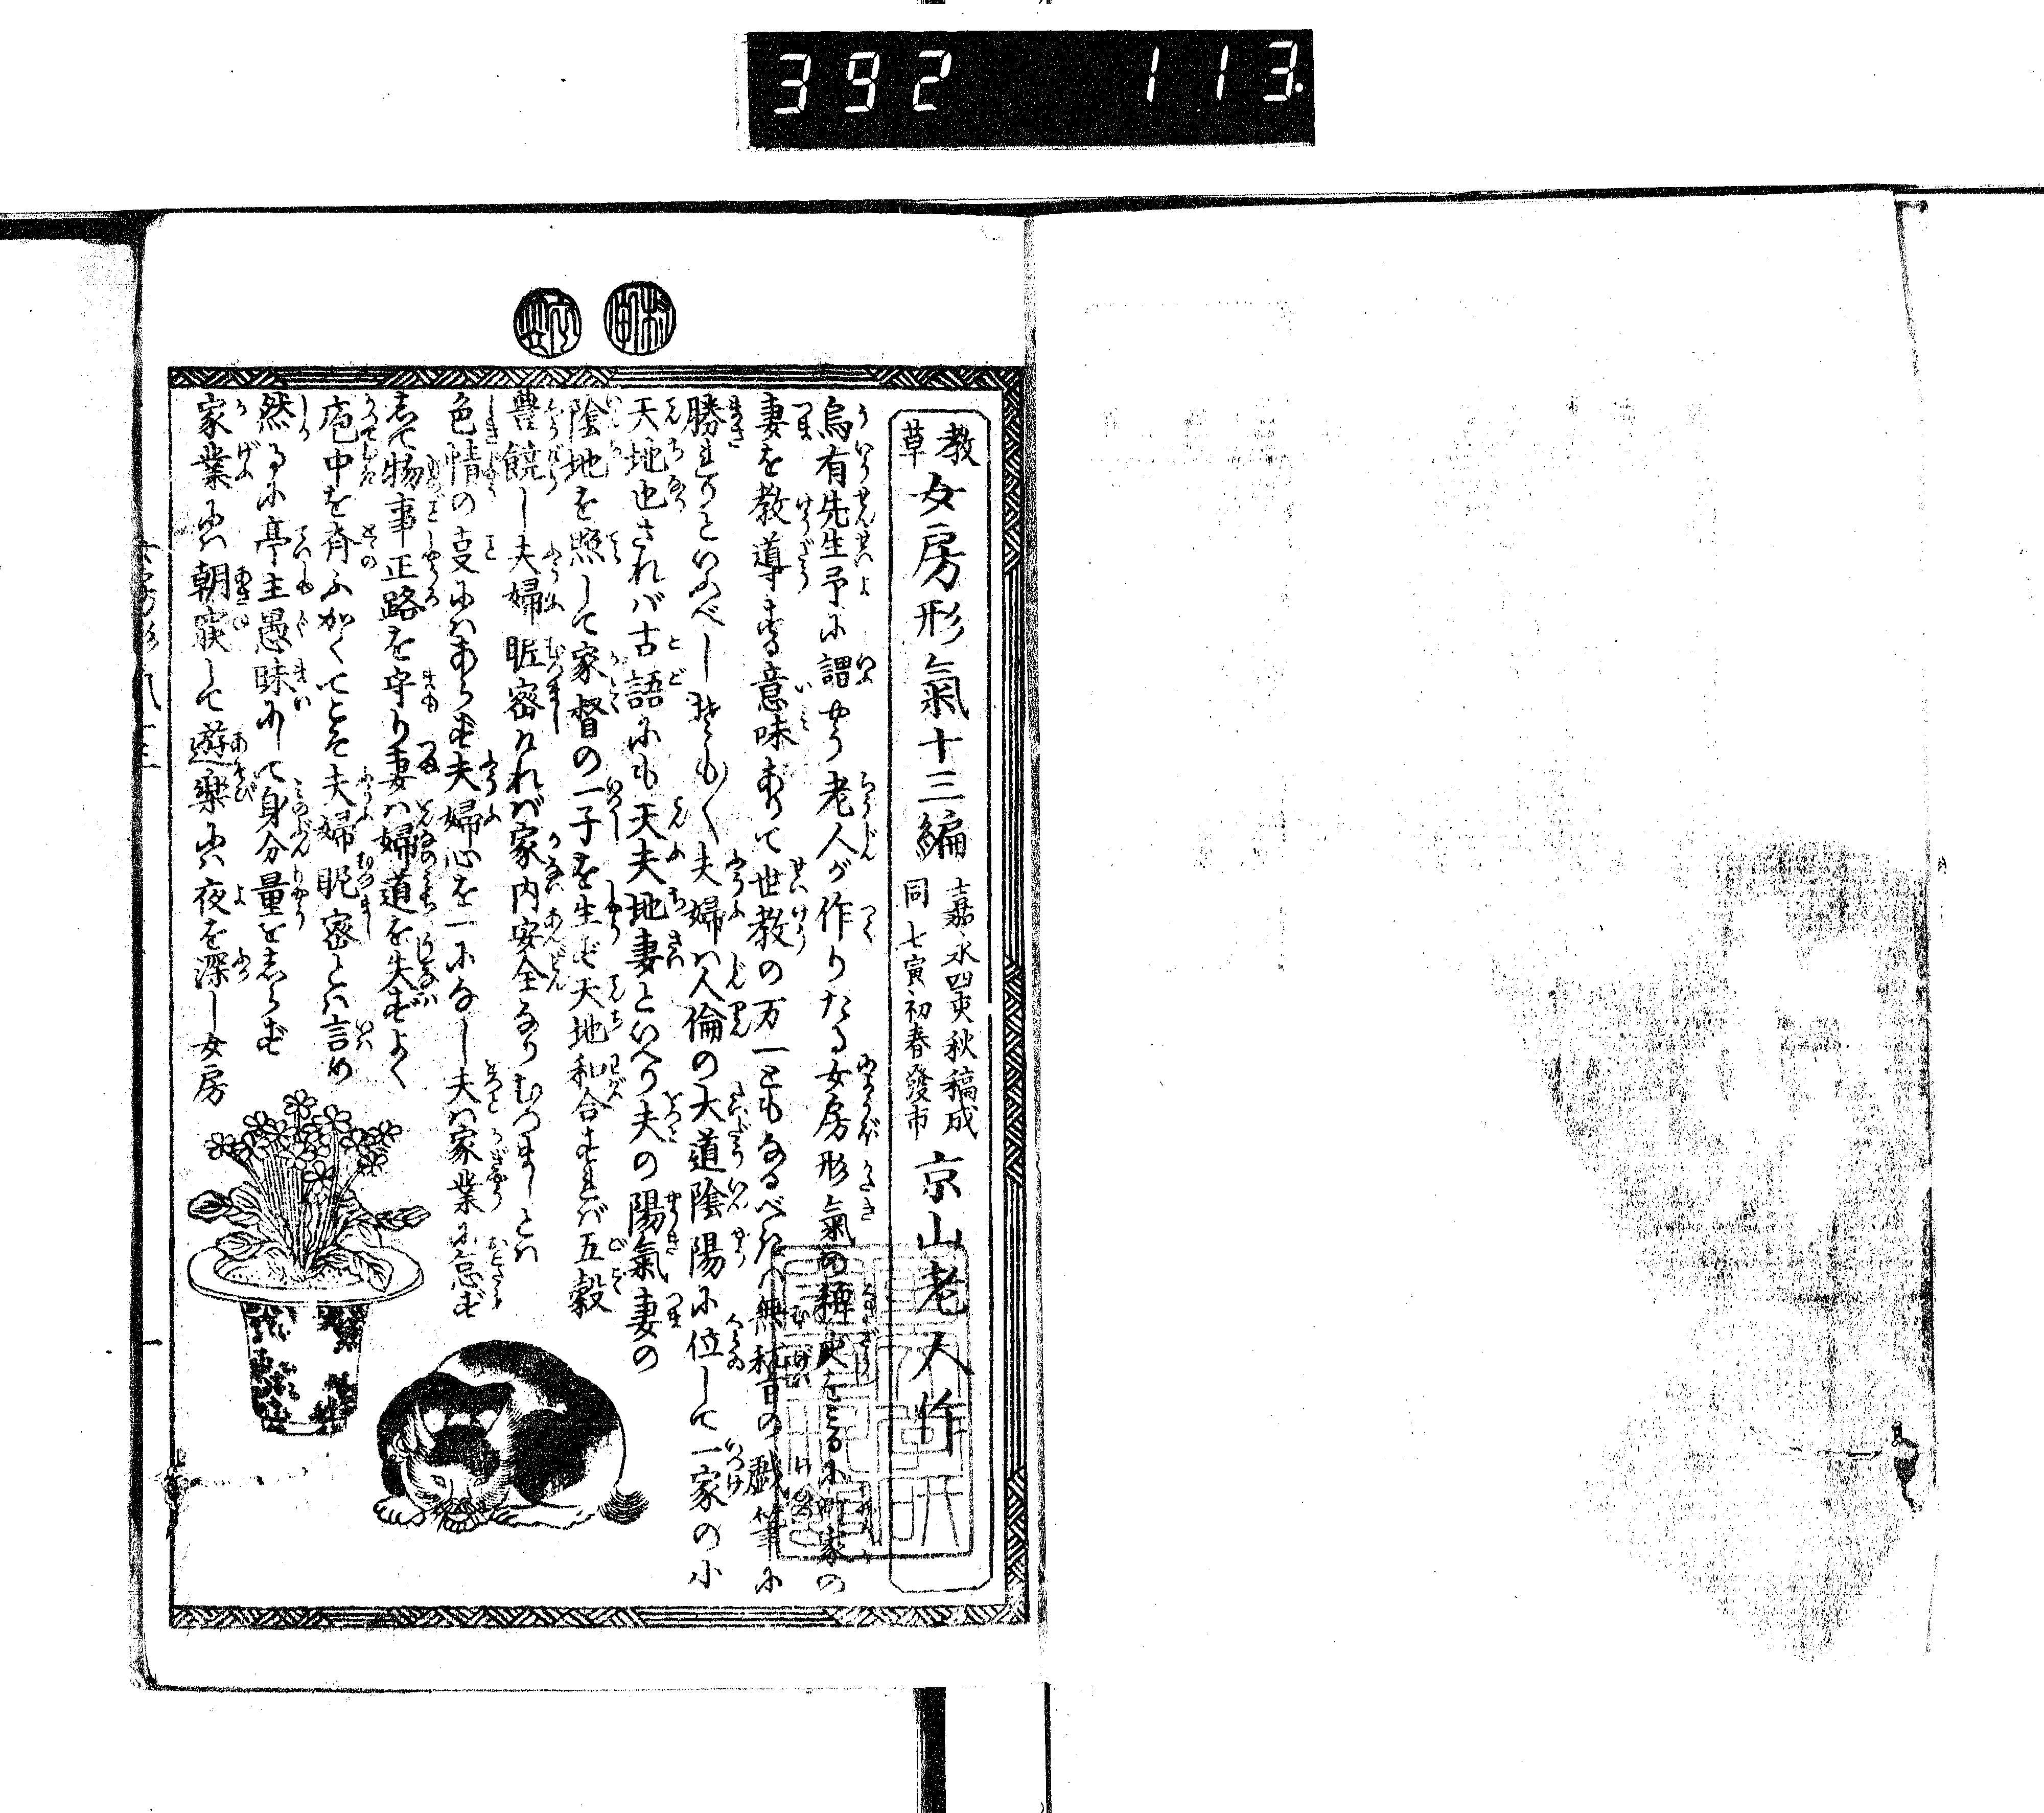 392 113.
教草 女房形氣十三編 嘉永四亥秋稿成 同七寅初春發市 京山老人作
烏有先生予に謂やう老人が作りたる女房形氣の種史をみるに町家の
妻を教導する意味ありて世教の万一ともなるべければ無稽の戯筆に
勝れりといふべしそも〳〵夫婦ハ人倫の大道陰陽に位して一家の小
天地也されバ古語にも天夫地妻といへり夫の陽氣妻の
陰地を照して家督の一子を生ず天地和合すれバ五穀
豊饒し夫婦昵密けれバ家内安全なりむつましとハ
色情の事にハあらず夫婦心を一になし夫ハ家業に怠ず
志て物事正路を守り妻ハ婦道を失ずよく
庖中を斉ふかくてこそ夫婦昵密とハ言め
然るに亭主愚昧にして身分量を志らず
家業にハ朝寐して遊樂にハ夜を深し女房